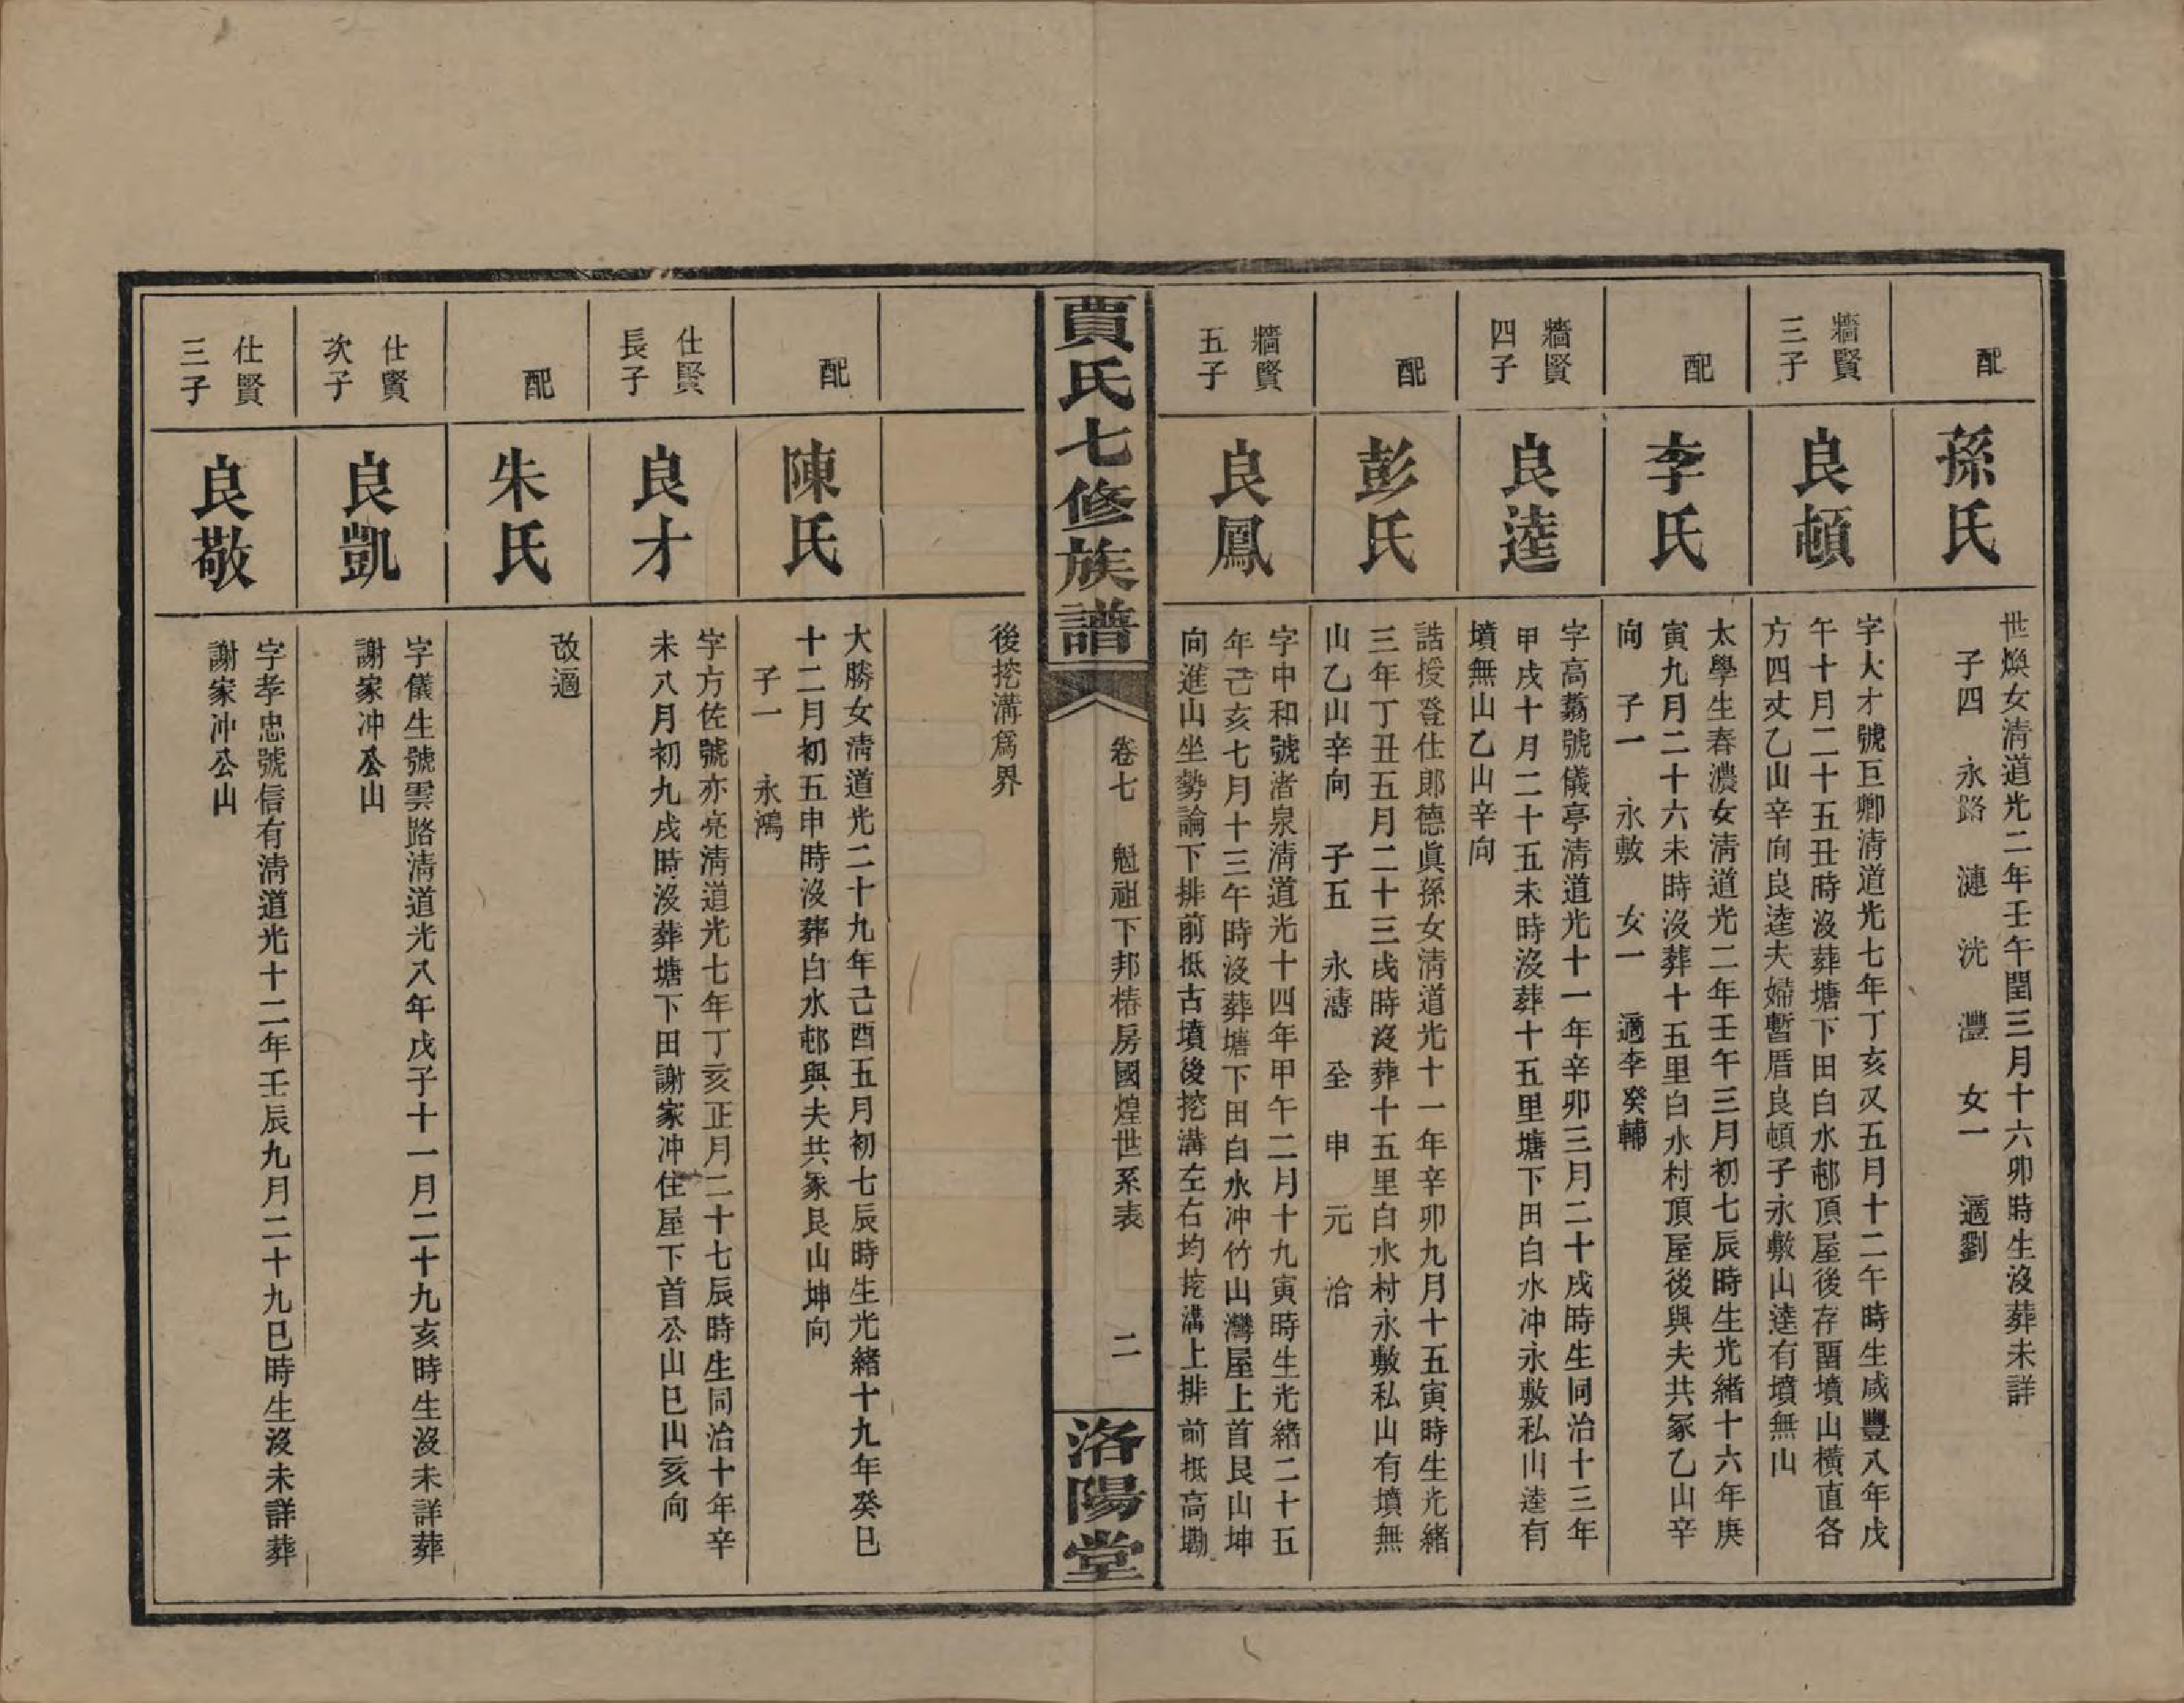 配
孫氏
世煥女淸道光二年壬午閏三月十六卯時生沒葬未詳
子四　永路　漣　洸　灃　女一　適劉
牆賢
三子
良頓
字大才號巨卿淸道光七年丁亥又五月十二午時生咸豐八年戊
午十月二十五丑時沒葬塘下田白水邨頂屋後存畱墳山橫直各
方四丈乙山辛向良逵夫婦暫厝良頓子永敷山逵有墳無山
配
李氏
太學生春濃女淸道光二年壬午三月初七辰時生光緒十六年庚
寅九月二十六未時沒葬十五里白水村頂屋後與夫共冢乙山辛
向　子一　永敷　女一　適李癸輔
牆賢
四子
良逵
字高蕎號儀亭淸道光十一年辛卯三月二十戌時生同治十三年
甲戌十月二十五未時沒葬十五里塘下田白水冲永敷私山逵有
墳無山乙山辛向
配
彭氏
誥授登仕郎德眞孫女淸道光十一年辛卯九月十五寅時生光緒
三年丁丑五月二十三戌時沒葬十五里白水村永敷私山有墳無
山乙山辛向　子五　永濤　全　申　元　洽
牆賢
五子
良鳳
字中和號渚泉淸道光十四年甲午二月十九寅時生光緒二十五
年己亥七月十三午時沒葬塘下田白水冲竹山灣屋上首艮山坤
向進山坐勢論下排前抵古墳後挖溝左右均挖溝上排前抵高墈
賈氏七修族譜
卷七　魁祖下邦椿房國煌世系表　二
洛陽堂
後挖溝爲界
配
陳氏
大勝女淸道光二十九年己酉五月初七辰時生光緒十九年癸巳
十二月初五申時沒葬白水邨與夫共冢艮山坤向
子一　永鴻
仕賢
長子
良才
字方佐號亦亮淸道光七年丁亥正月二十七辰時生同治十年辛
未八月初九戌時沒葬塘下田謝家冲住屋下首公山巳山亥向
配
朱氏
改適
仕賢
次子
良凱
字儀生號雲路淸道光八年戊子十一月二十九亥時生沒未詳葬
謝家冲公山
仕賢
三子
良敬
字孝忠號信有淸道光十二年壬辰九月二十九巳時生沒未詳葬
謝家冲公山